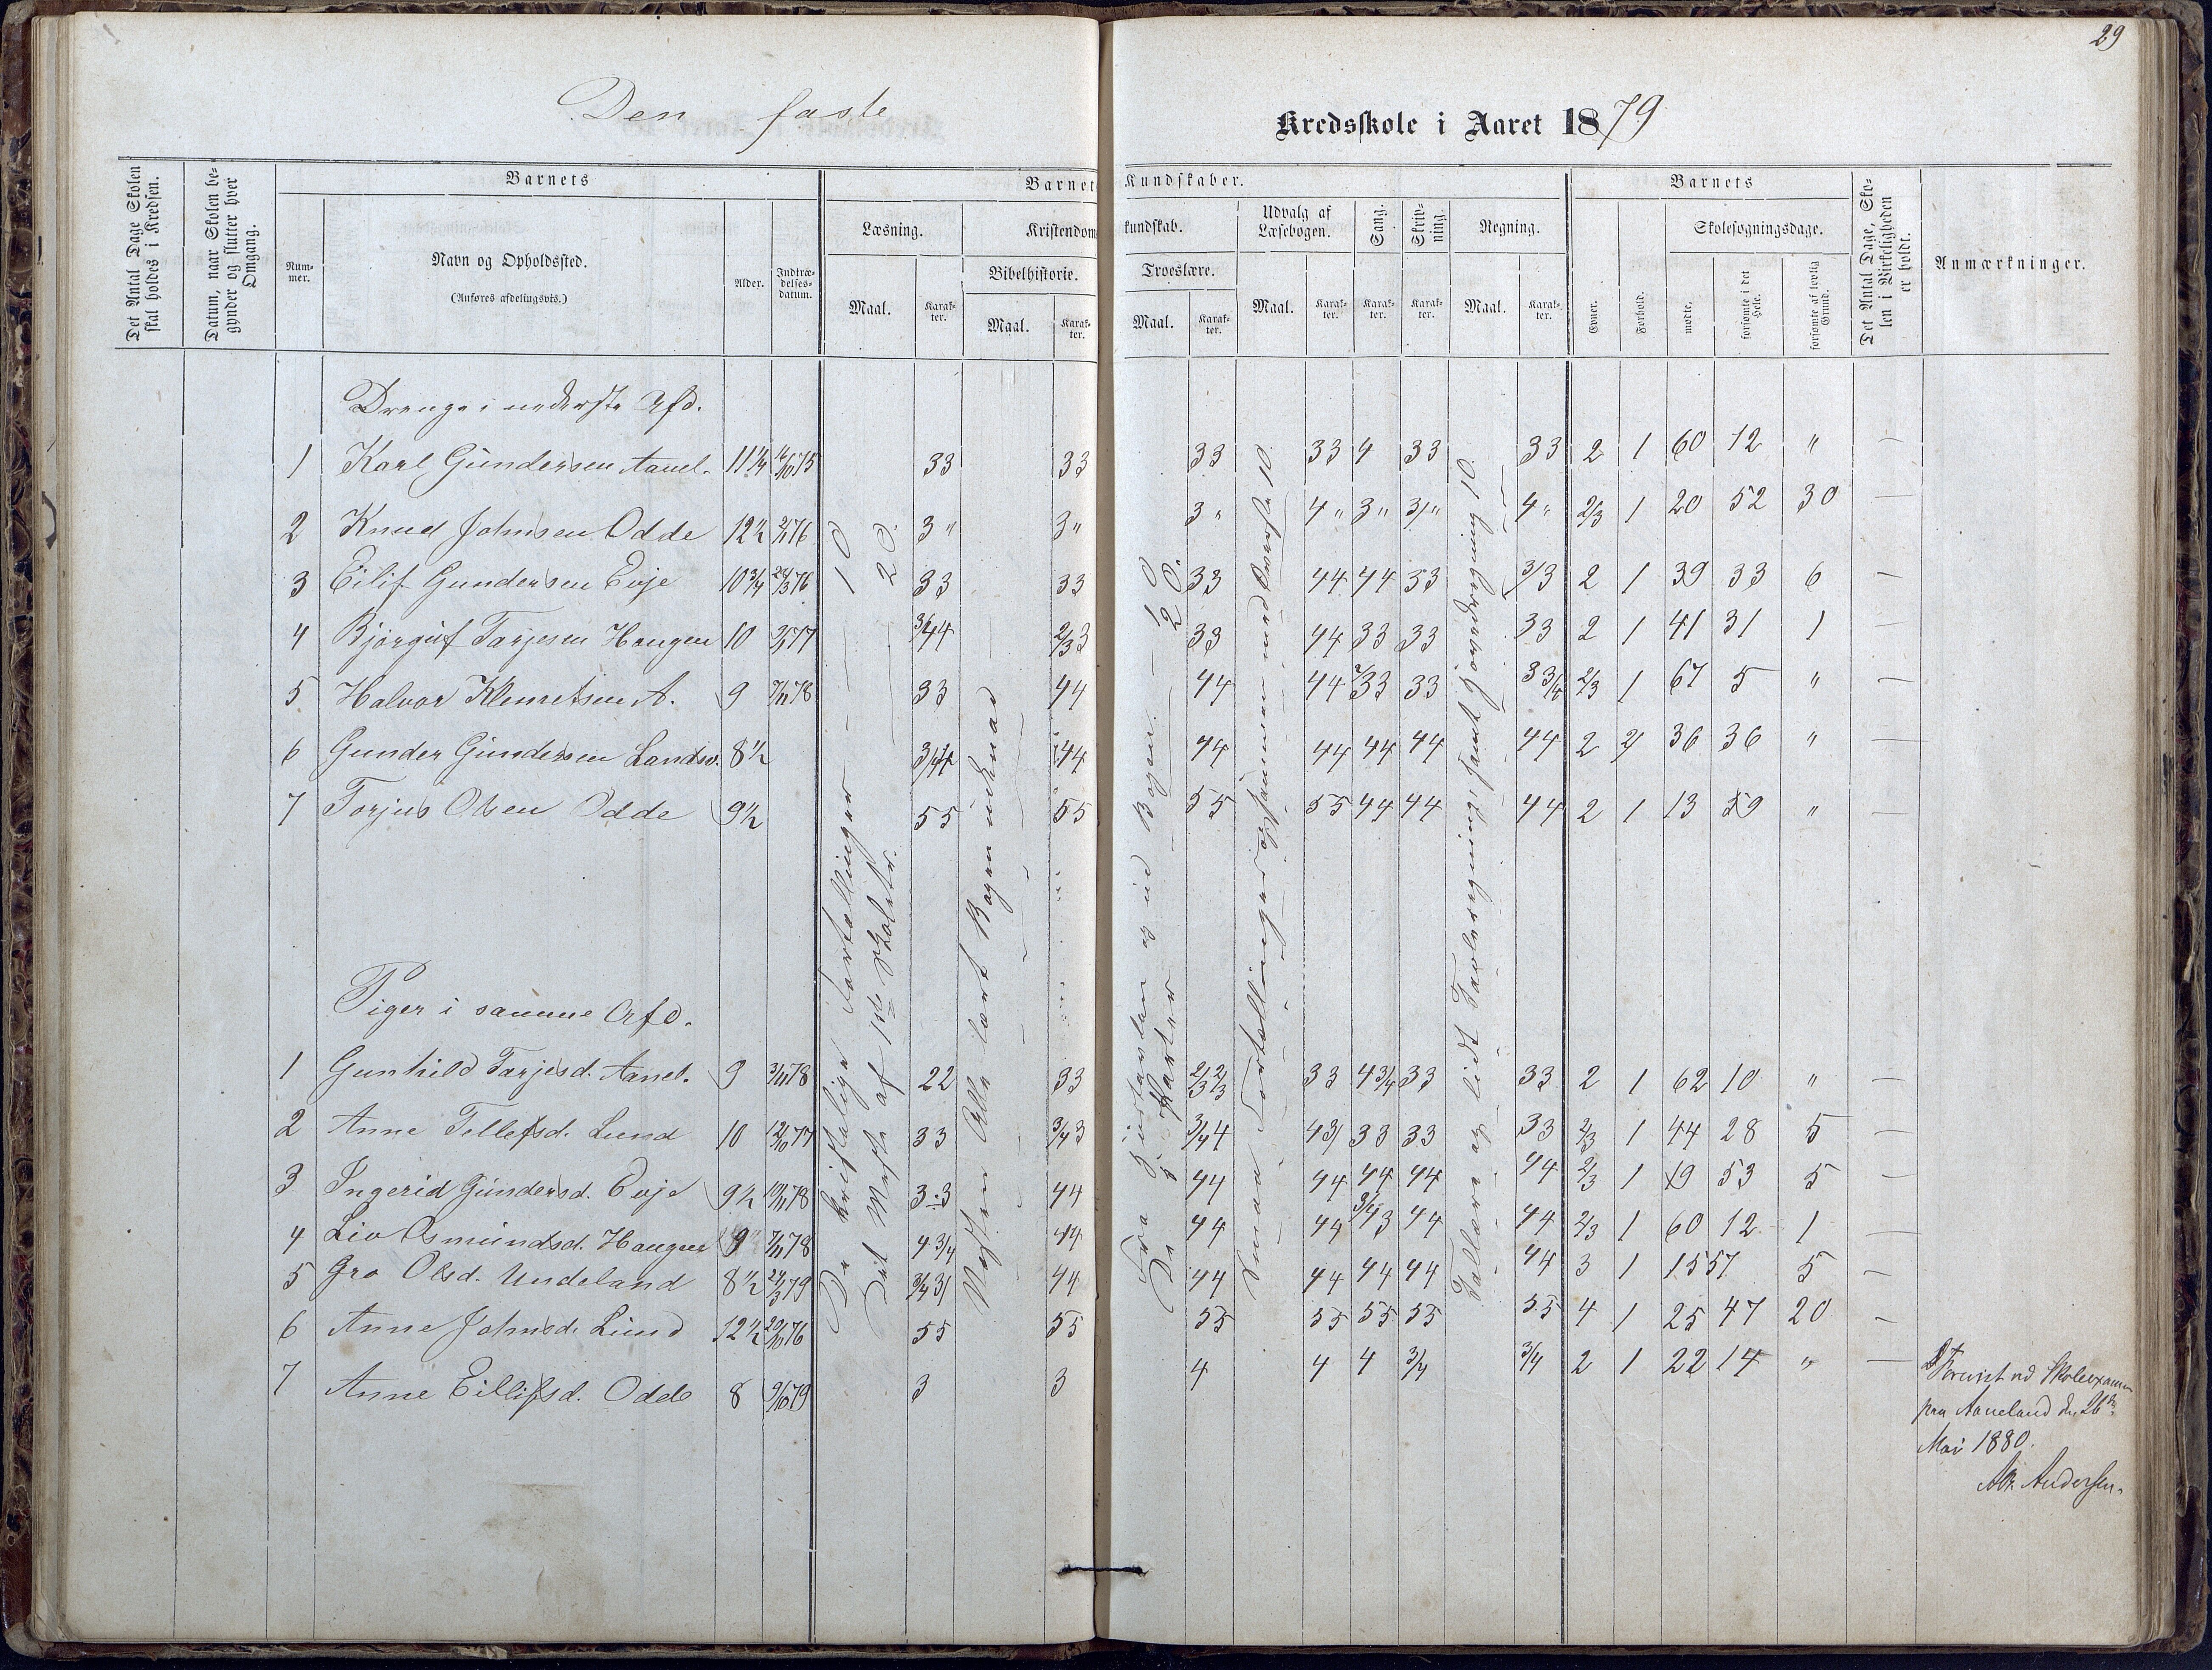 29
Den faste Kredsskole i Aaret 1879
Det Antal Dage Skolen skal holdes i Kredsen.
Datum, naar Skolen begynder og slutter hver Omgang.
Barnets
Nummer.
Navn og Opholdssted.
(Anføres afdelingsvis.)
Alder.
Indtrædelsesdatum.
Barnets Kundskaber.
Læsning.
Maal.
Karakter.
Kristendomskundskab.
Bibelhistorie.
Maal.
Karakter.
Troeslære.
Maal.
Karakter.
Udvalg af Læsebogen.
Maal.
Karakter.
Sang.
Karakter.
Skrivning.
Karakter.
Regning.
Maal.
Karakter.
Barnets
Evner.
Forhold.
Skolesøgningsdage.
mødte.
forsømte i det Hele.
forsømte af lovlig Grund.
Det Antal Dage, Skolen i Virkeligheden er holdt.
Anmærkninger.
Drenge i nederste Afd.
1 Karl Gundersen Aanel. 11 1/4 16/10 75 33 33 33 33 4 33 33 2 1 60 12 " —
2 Knud Johnsen Odde 12 1/2 2/1 76 3 " 3 " 3 " 4 " 3 " 3 " 4 " 2/3 1 20 52 30 —
3 Eilif Gundersen Evje 10 3/4 24/3 76 33 33 33 44 44 33 3/3 2 1 39 33 6 —
4 Bjørguf Tarjesen Haugen 10 77 3/4 4 2/3 3 33 44 33 33 33 2 1 41 31 1 —
5 Halvor Klemetsen A. 9 7/11 78 33 44 44 44 33 33 3 3/4 2/3 1 67 5 " —
6 Gunder Gundersen Landsv. 8 1/2 44 44 44 44 44 44 2 2 36 36 " —
7 Torjus Olsen Odde 9 1/2 55 55 55 55 44 44 44 2 1 13 59 " —
Piger i samme Afd.
1 Gunhild Tarjesd. Aanel. 9 3/11 78 22 33 2/3 2/3 33 4 3/4 33 33 2 1 62 10 " —
2 Anne Tellefsd. Lund 10 12/10 77 33 3/4 3 3/4 4 43 33 33 33 2/3 1 44 28 5 —
3 Ingerid Gundersd. Evje 9 1/2 10/11 78 3 3 44 44 44 44 44 44 2/3 1 19 53 5 —
4 Liv Osmundsd. Haugen 9 7/11 78 4 3/4 44 44 44 3/4 3 44 44 2/3 1 60 12 1 —
5 Gro Olsd. Undeland 8 1/2 24/3 79 3/4 3 44 44 44 44 44 44 3 1 15 57 5 —
6 Anne Johnsd. Lund 12 1/2 20/10 76 55 55 55 55 55 55 55 4 1 25 47 20 —
7 Anne Eillifsd. Odde 8 9/10 79 3 3 4 4 4 3/4 3/4 2 1 22 14 " —
De kristelige Fortællinger — 10
Det Meste af 1ste Skoletr. 20.
Næsten Alle lært Bogen udenad
Bogen. — 10
De i Karter — 20.
Smaa Fortællinger
Tællære og lidt Tavleregning, samt Hovedregning 10
Forevist ved Skoleexamen
paa Aaneland den 26de
Mai 1880.
Andersen.